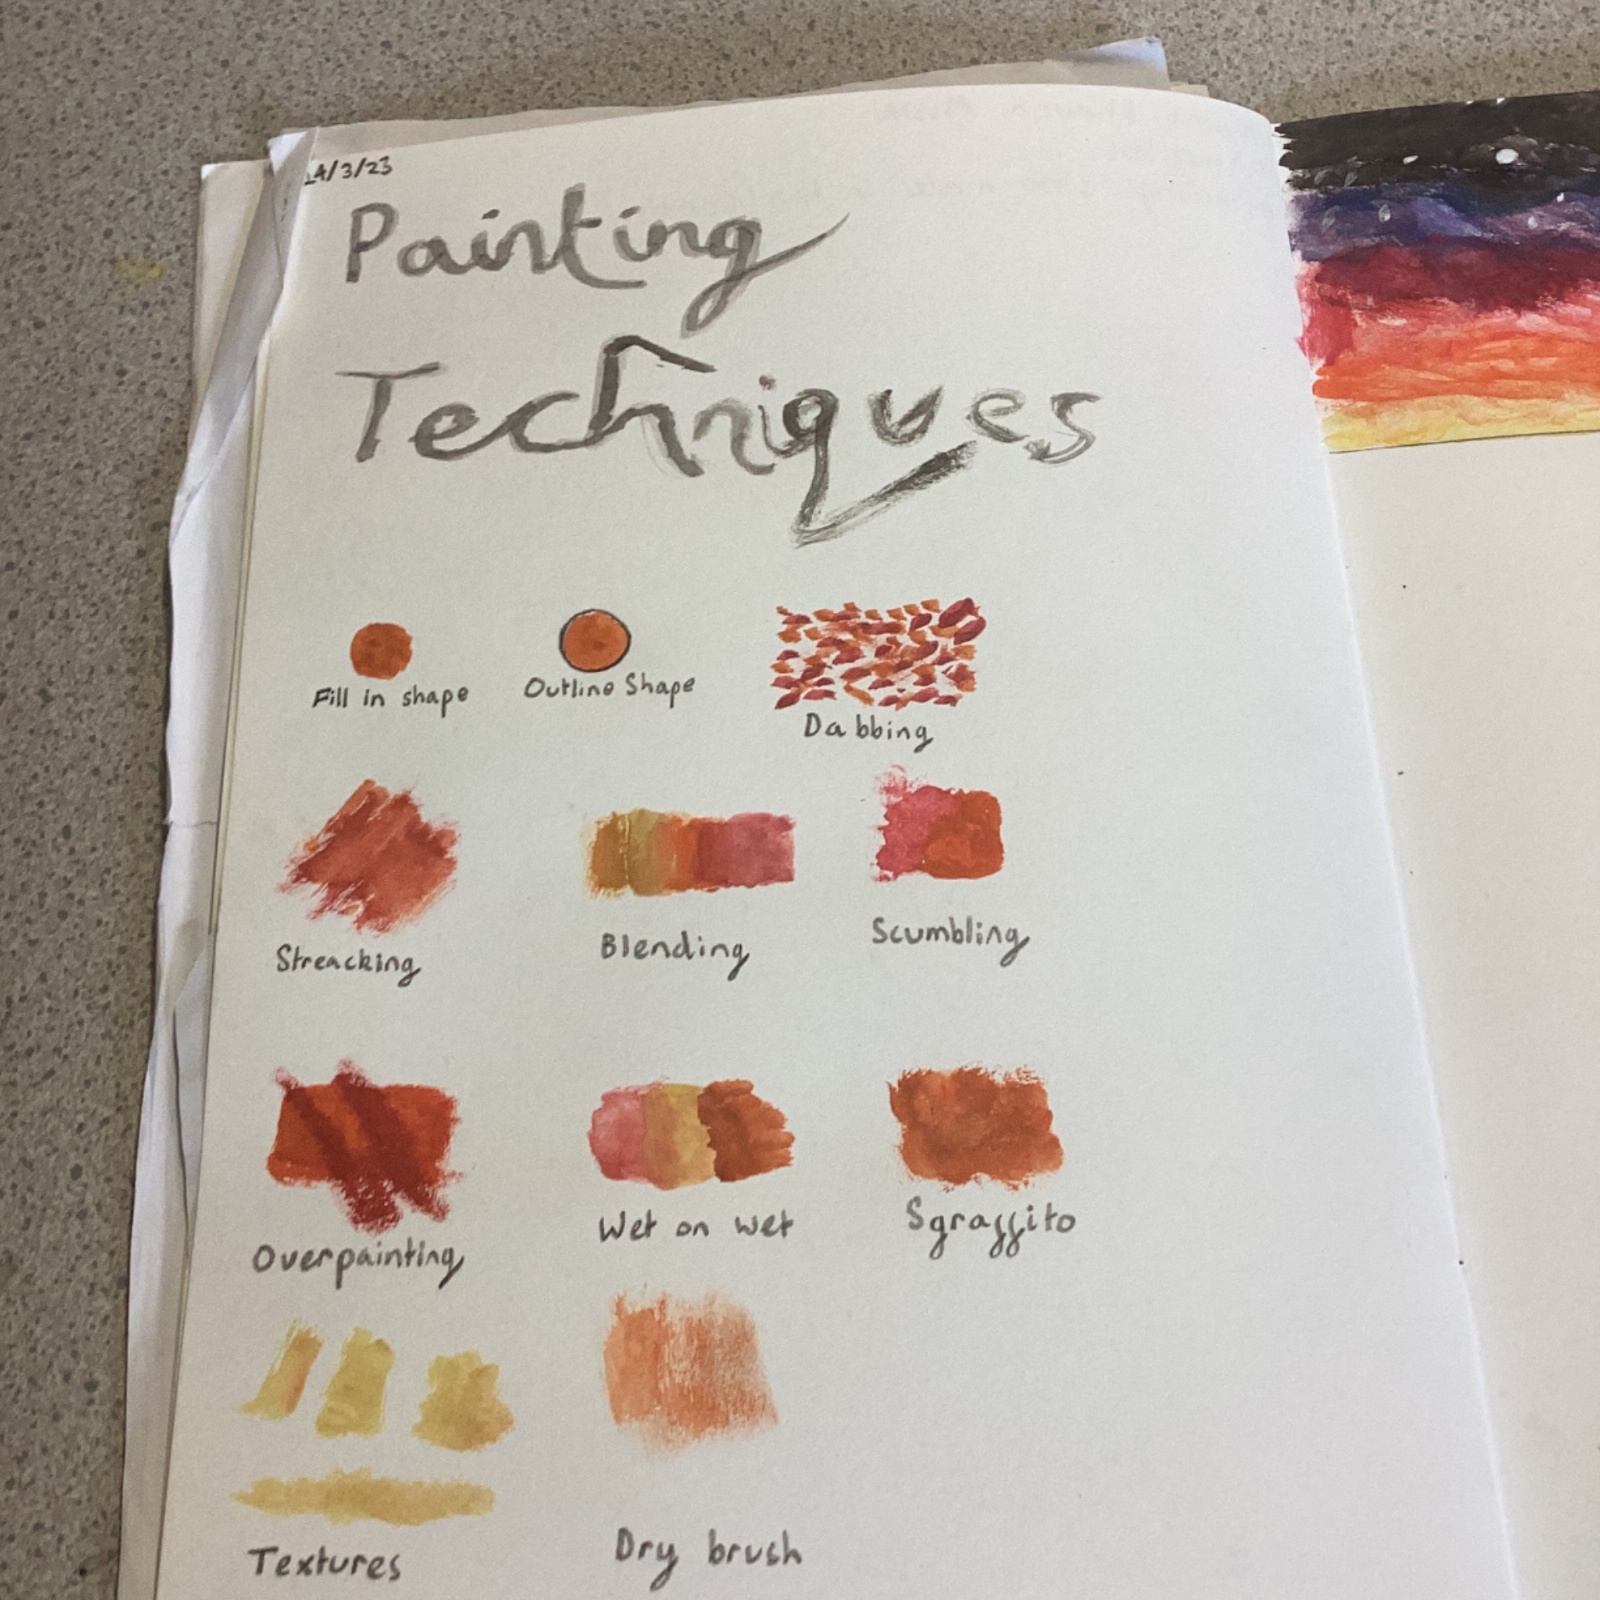 4/3/23
Painting
Techniques
Fill in shape
Outline Shape
Dabbing
Streacking
Blending
Scumbling
Overpainting
Wet on wet
Sgraffito
Textures
Dry brush